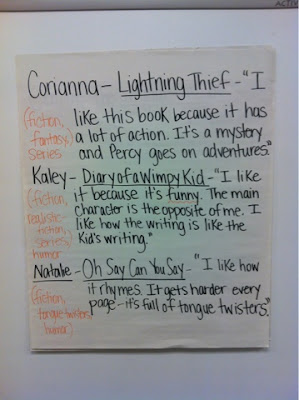 Corianna - Lightning Thief - "I
(fiction, like this book because it has
fantasy, a lot of action. It's a mystery
series and Percy goes on adventures."
Kaley - Diary of a Wimpy Kid - "I like
(fiction, it because it's funny. The main
realistic character is the opposite of me. I
fiction, like how the writing is like the
series, Kid's writing."
humor
Natalie - Oh Say Can You Say - "I like how
it rhymes. It gets harder every
(fiction, page - it's full of tongue twisters."
tongue twisters,
humor)